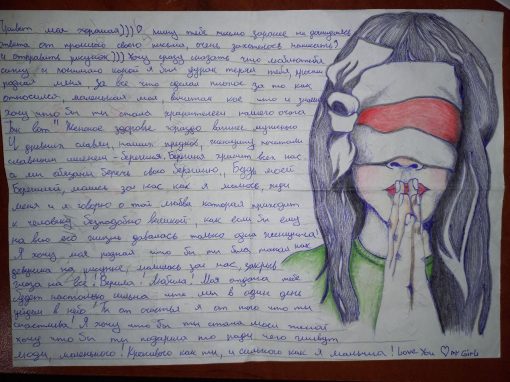 Привет моя хорошая))) Я пишу тебе письмо заранее не дождавшись
ответа от прошлого своего письма, очень захотелось написать?
и отправить рисунок))) Хочу сразу сказать что
и понимаю какой я был дурак терял тебя
родная меня, за всё что сделал плохое за то как
относился, маленькая моя, кое что и
хочу что бы ты стала хранителем нашего очага
Так вот" Женское здоровье гораздо важнее мужского
У древних славян, наших предков, женщину почитали
славным именем - берегиня. Берегиня хранит всех нас
а мы обязаны беречь свою берегиню. Будь моей
Берегиней, молись за нас как я молюсь, жди
меня и я говорю о той любви которая приходит
к человеку безподобно великой: как если бы ему
на всю его жизнь давалась только одна женщина!
Я хочу моя родная что бы ты была такой как
девушка на рисунке, молилась за нас, закрыв
глаза на всё! Верила! Любила! Моя отдача тебе
будет настолько сильна что мы в один день
уйдём в небо, я от счастья а от того что ты
счастлива! Я хочу что бы ты стала моей женой
хочу что бы ты подарила то ради чего живут
люди, маленького! Красивого как ты, и сильного как я малыша! Love You ♡ my Girls